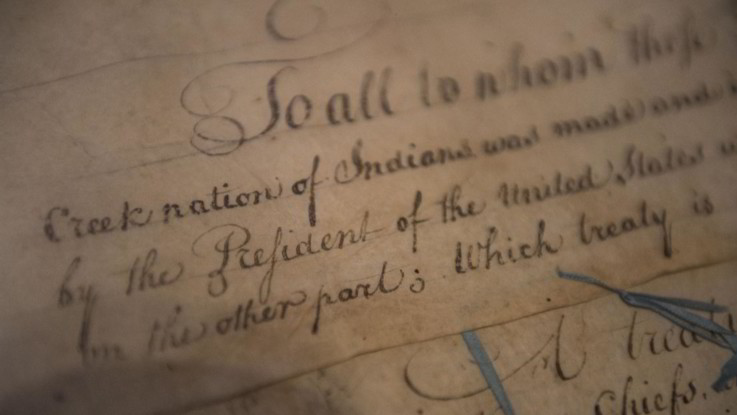 To all to whom these
Creek nation of Indians was made and
by the President of the United States
on the other part; Which treaty is
A treaty
Chiefs,